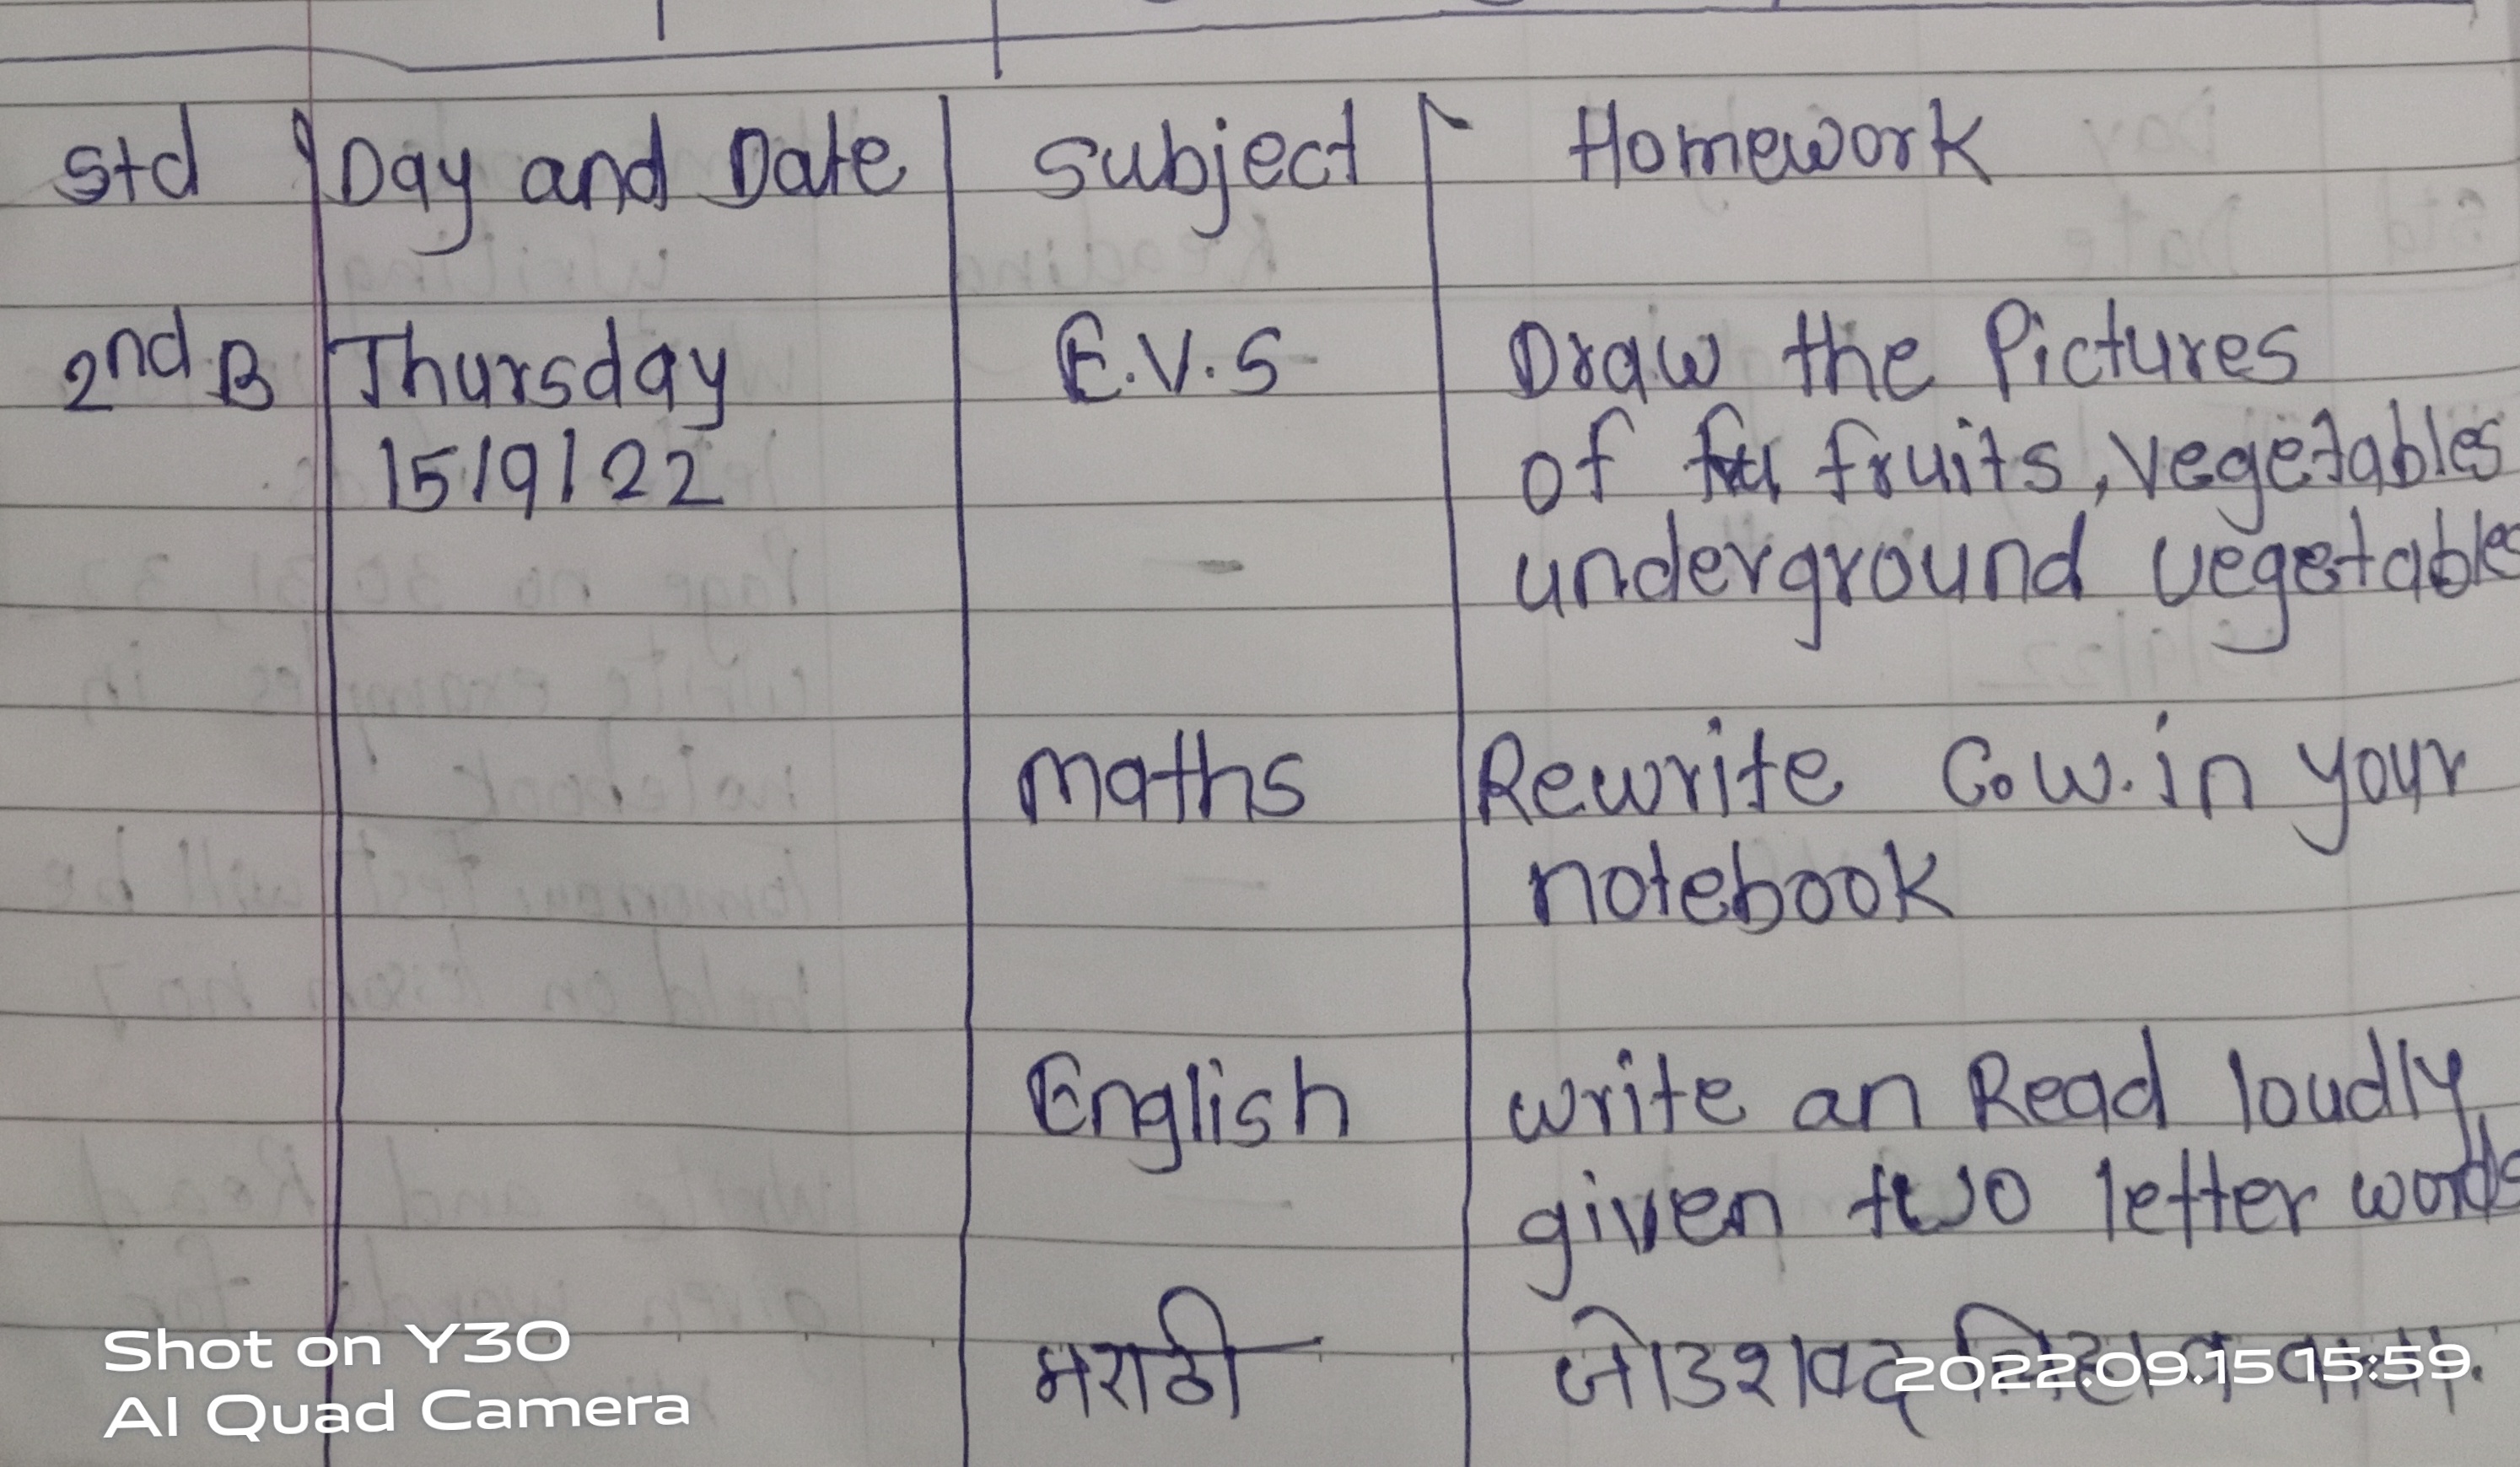 std Day and Date subject Homework
2nd B Thursday E.V.S Draw the Pictures
15/9/22 of fru fruits, vegetables
underground vegetables
maths Rewrite C.W. in your
notebook
English write an Read loudly
given two letter words
मराठी जोडशब्द लिहा व वाचा.
Shot on Y30
AI Quad Camera
2022.09.15 15:59